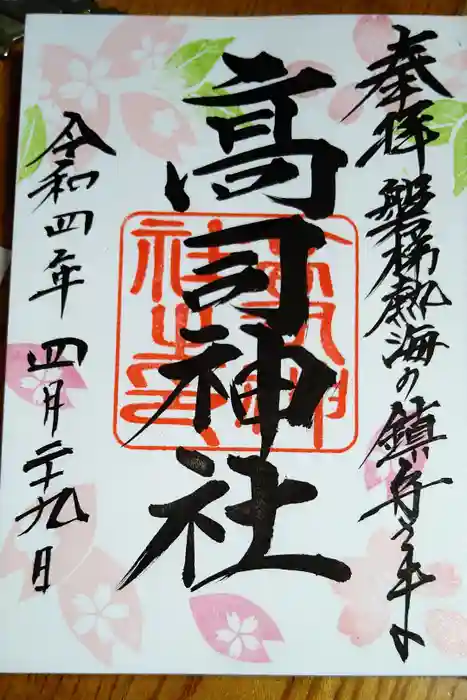 奉拝 磐梯熱海の鎮守の杜
高司神社
令和四年 四月二十九日